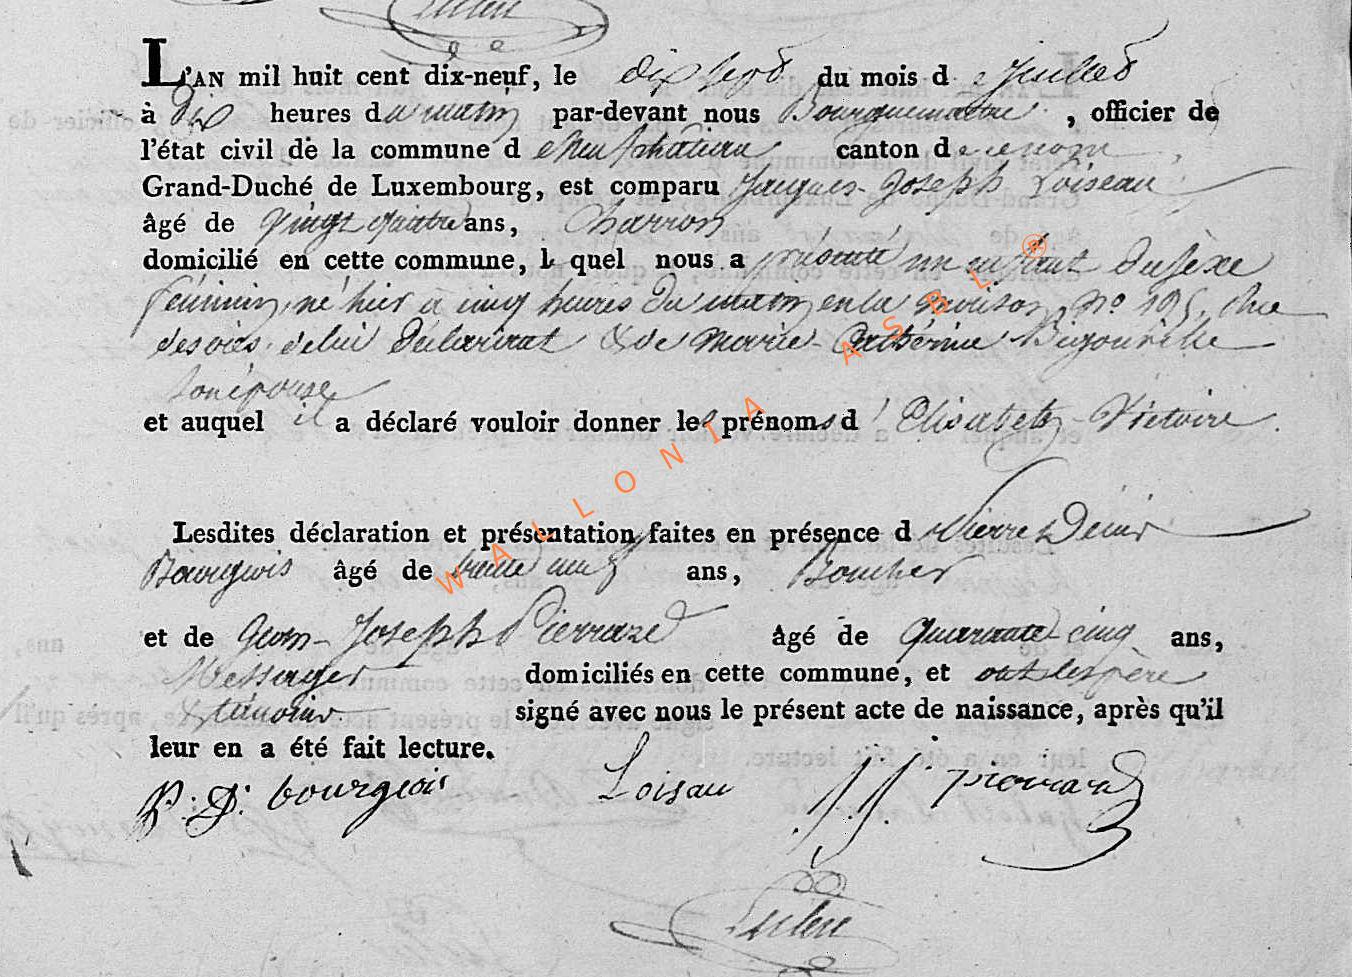 L'AN mil huit cent dix-neuf, le dix sept du mois de Juillet
à Dix heures du matin par-devant nous Bourguemaitre, officier de
l'état civil de la commune de Neufchateau canton de
Grand-Duché de Luxembourg, est comparu Jacques-Joseph Loiseau
âgé de vingt quatre ans, Charron
domicilié en cette commune, lequel nous a présenté un enfant du sexe
féminin, né hier à cinq heures du matin en la maison, N° 195, Rue
de lui déclarant & de Marie-Cathérine
son épouse
et auquel il a déclaré vouloir donner les prénoms d'Elisabeth-Victoire.
Lesdites déclaration et présentation faites en présence de Pierre Denis
Bourgeois âgé de trente neuf ans, Boucher
et de Jean-Joseph Pierrard âgé de Quarante-cinq ans,
Messager domiciliés en cette commune, et ont les père
& témoins signé avec nous le présent acte de naissance, après qu'il
leur en a été fait lecture.
P: D: bourgeois Loisau J. J. pierrard
WALLONIA ASBL ®